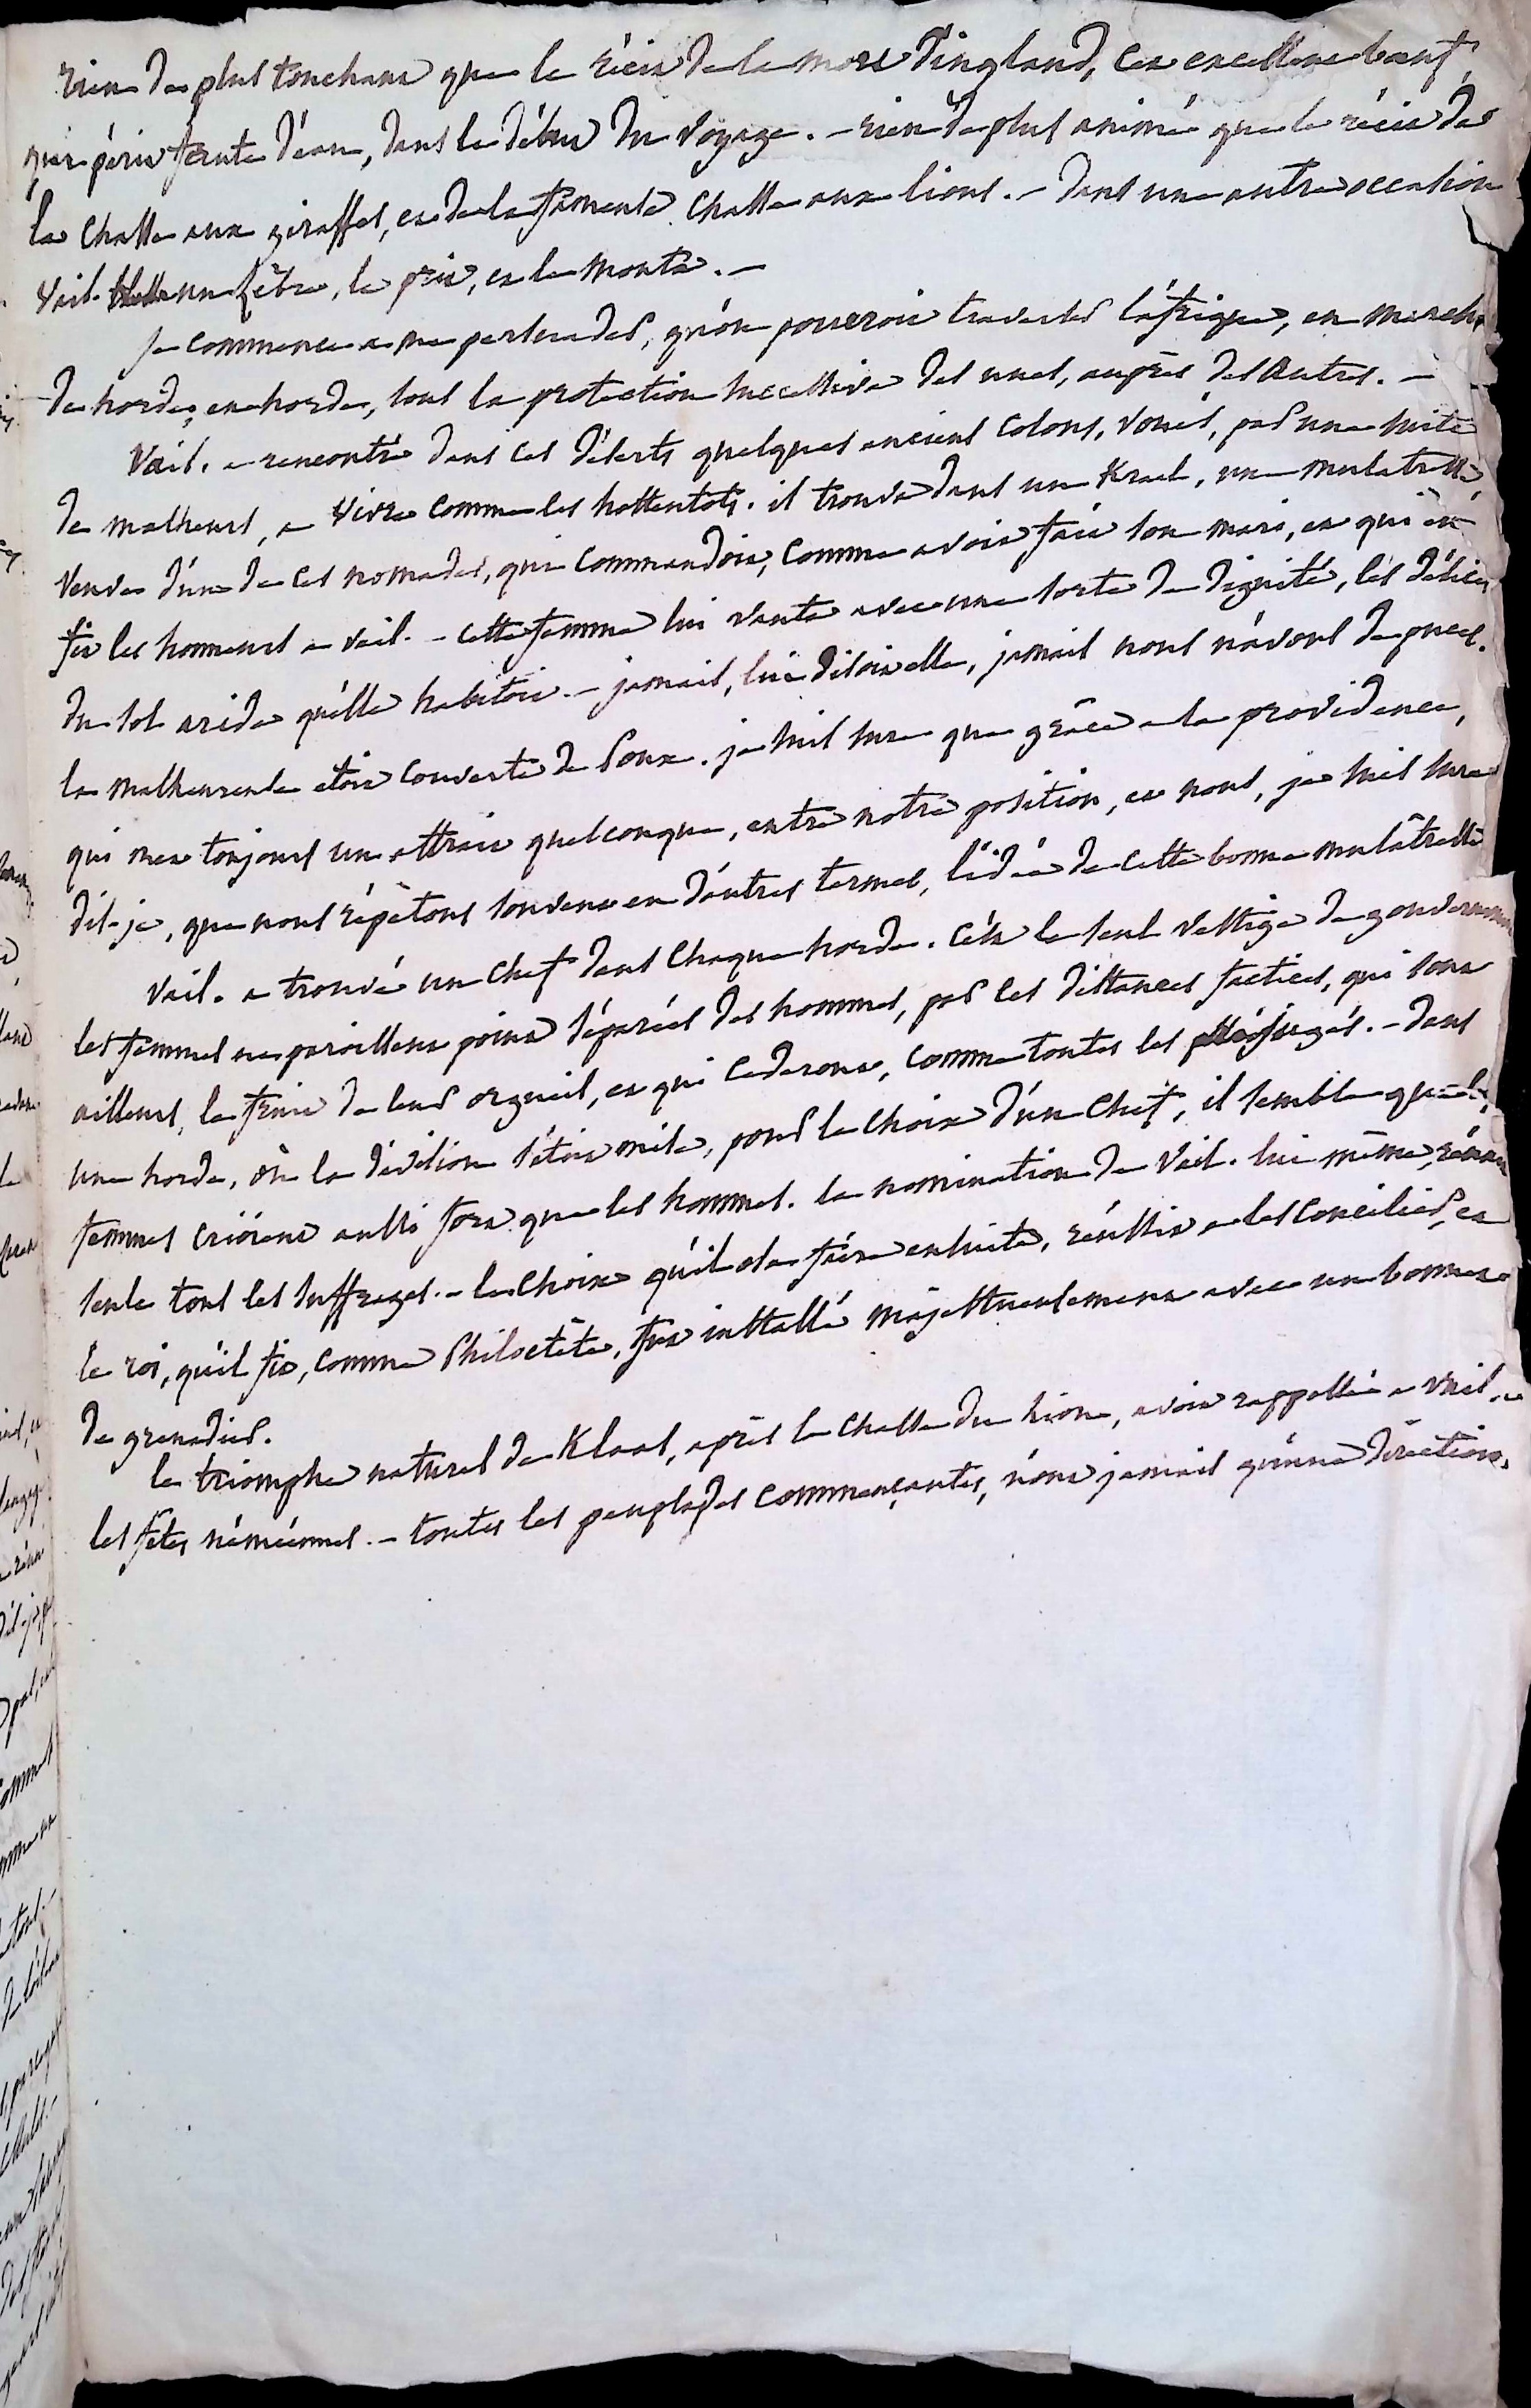 rien de plus touchant que le récit de la mort d'ingland, cet excellent bœuf,
qui périt faute d'eau, dans le début du voyage. - rien de plus animé que le récit de
la chasse aux giraffes, et de la fameuse chasse aux lions. - dans une autre occasion
Vail. blesse un zèbre, le prit, et le monta. -
je commence a me persuader, qu'on pourroit traverser l'afrique, en marchant
de horde, en horde, sous la protection successive des unes, auprès des autres. -
Vail. a rencontré dans ces déserts quelques anciens colons, voués, par une suite
de malheurs, a vivre comme les hottentots. il trouva dans un Kraal, une mulatresse,
veuve d'un de ces nomades, qui commandoit, comme avoit fait son mari, et qui en
fit les honneurs a vail. - cette femme lui vanta avec une sorte de dignité, les délices
du sol aride qu'elle habitoit. - jamais, lui disoit elle, jamais nous n'avons de puces.
la malheureuse étoit couverte de poux. je suis sure que grâce a la providence,
qui met toujours un attrait quelconque, entre notre position, et nous, je suis sure
dis-je, que nous répétons souvent en d'autres termes, l'idée de cette bonne mulâtresse
vail. a trouvé un chef dans chaque horde. c'est le seul vestige de gouvernement
les femmes ne paroissent point séparées des hommes, par ces distances factices, qui sont
ailleurs, le fruit de leur orgueil, et qui cederont, comme toutes les préjugés. - dans
une horde, où la division s'étoit mise, pour le choix d'un chef, il semble que les
femmes crioient aussi fort que les hommes. la nomination de Vail. lui même, réunit
seule tous les suffrages. - le choix qu'il osa faire ensuite, réussit a les concilier, et
le roi, qu'il fit, comme Philoctète, fut installé majestueusement avec un bonnet
de grenadier.
le triomphe naturel de Klaas, après la chasse du lion, avoit rappellé a Vail.
les fêtes néméennes. - toutes les peuplades commençantes, n'ont jamais qu'une direction.